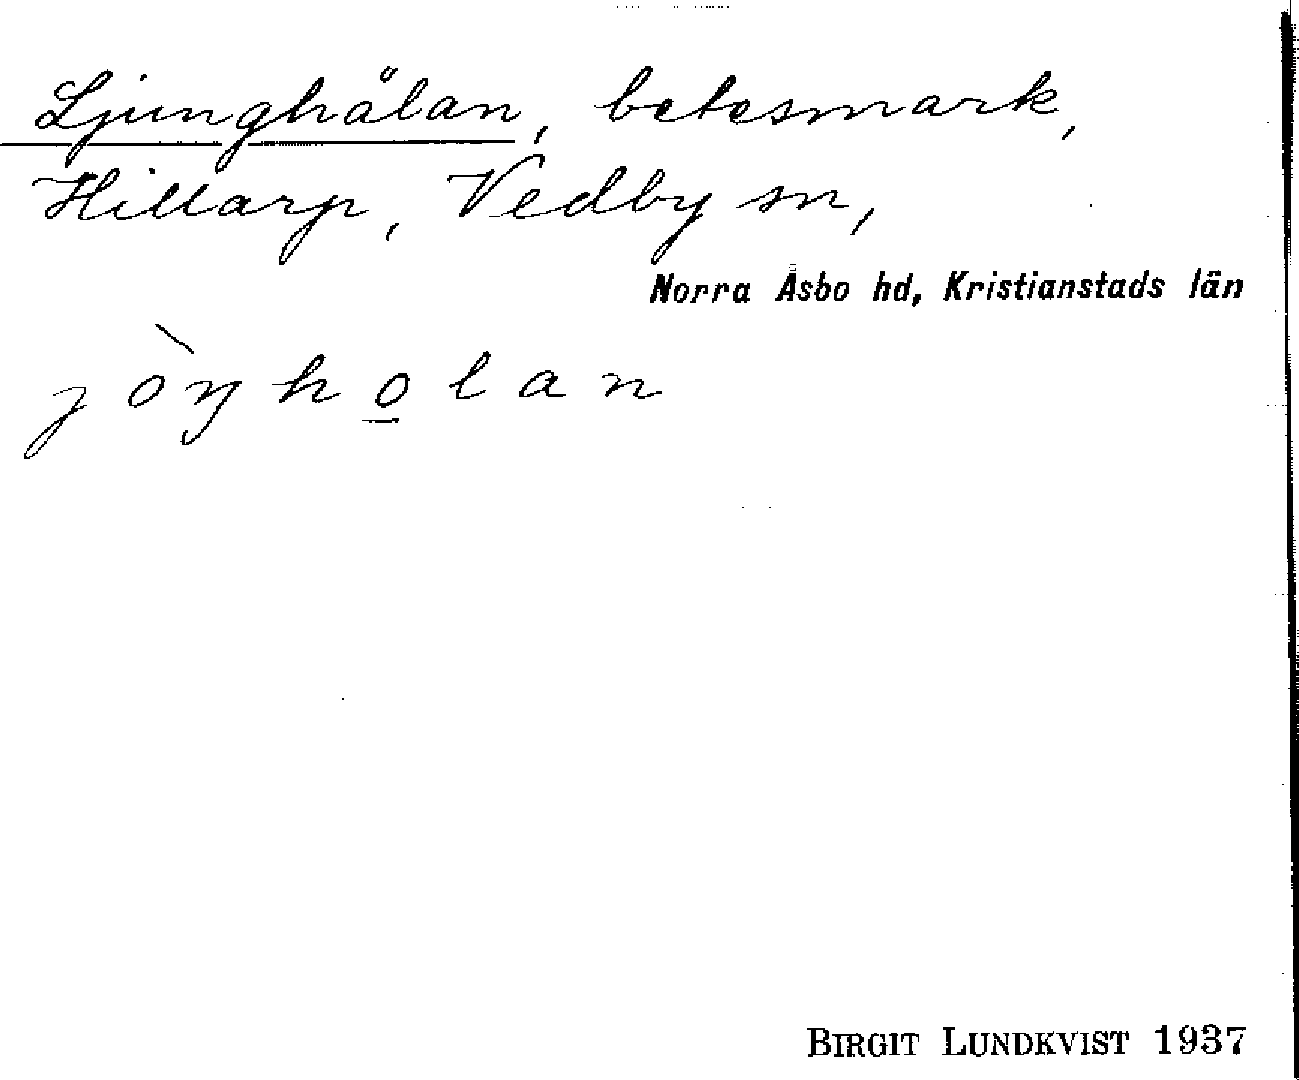 Ljunghålan, betesmark,
Hillarp, Vedby sn,
Norra Åsbo hd, Kristianstads län
jòŋho̲lan
BIRGIT LUNDKVIST 1937